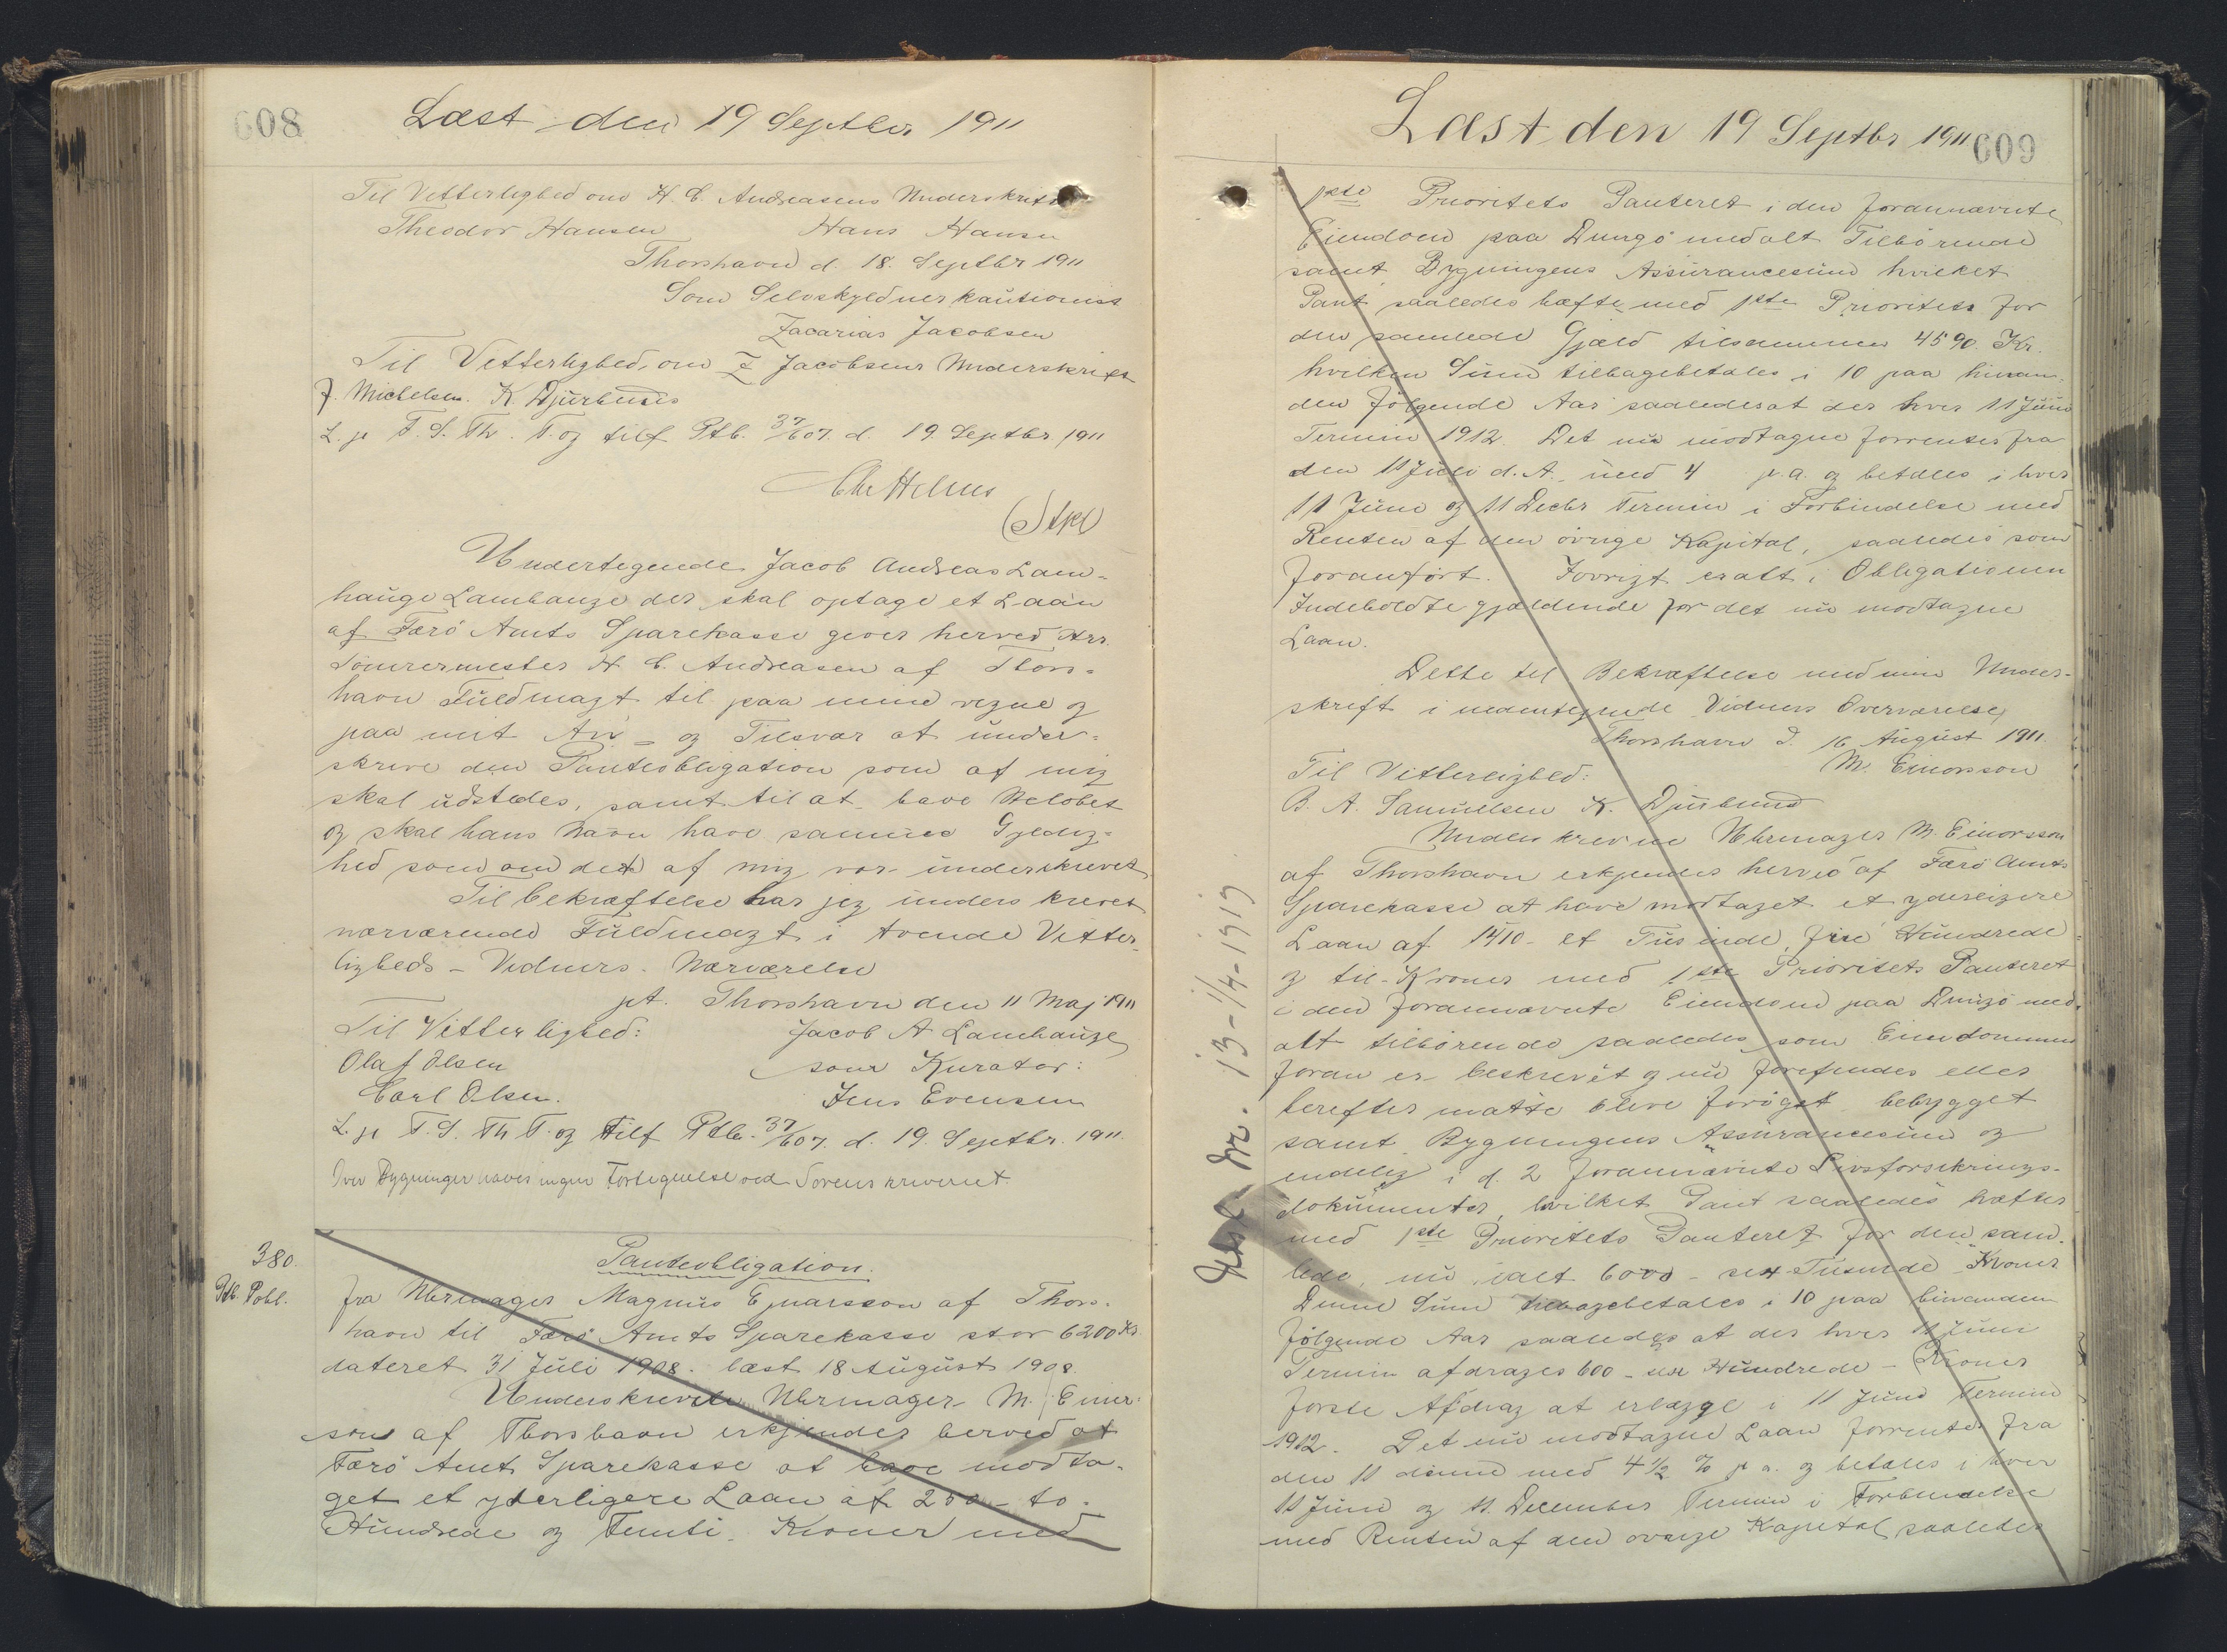 608
Læst den 19 Septber 1911
Til Vitterlighed om H. C. Andreasens Underskrift
Theodor Hansen Hans Hansen
Thorshavn d. 18. Septbr 1911
Som Selvskyldnerkautionist
Zacarias Jacobsen
Til Vetterlighed, om Z Jacobsens Underskrift
J. Michelsen. K. Djurhuus
L. p F. S. Th. T. og tilf Ptb. 37/607. d. 19 Septbr. 1911
Undertegnede Jacob Andreas Lam-
hauge Lambauge der skal optage et Laan
af Færö Amts Sparekasse giver herved Hrr.
Tömrermester H. C. Andreasen af Thors-
havn Fuldmagt til paa mine vegne og
paa mit An- og Tilsvar at under-
skrive den Panteobligation som af mig
skal udstedes, samt til at have Beløbet
og skal hans Navn have samme Gyldig-
hed som om det af mig var underskrevet.
Til bekræftelse har jeg unders krevet
nærværende Fuldmagt i tvende Vitter-
ligheds- Vidners. Nærværelse
pt. Thorshavn den 11 Maj 1911
Til Vitterlighed: Jacob A Lamhauge
Olaf Olsen som Kurator:
Carl Olsen. Jens Evensen
L. p F. S. Th T. og tilf Ptb. 37/607. d. 19. Septbr. 1911.
Over Bygninger haves ingen Fortegnelse ved Sorenskriveriet.
380.
Ptb. Pobl.
Panteobligation.
fra Uhrmager Magnus Ejnarsson af Thors-
havn til Færö Amts Sparekasse stor 6200 Kr.
dateret 31 Juli 1908. læst 18 August 1908.
Underskrevne Uhrmager M. Einar-
son af Thorshavn erkjender herved at
Færö Amts Sparekasse at have modta-
get et yderligere Laan af 250 - to-
Hundrede og Femti. Kroner med
Læst den 19 Septbr 1911
609
1ste Prioritets Panteret i den forannævnte
Eiendom paa Dungö med alt Tilbörende
samt Bygningens Assurancesum hvilket
Pant saaledes hæfte med 1ste Prioritets for
den samlede Gjæld tilsammen 4590. Kr.
hvilken Sum tilbagebetales i 10 paa hinan-
den fölgende Aar saaledes at der hver 11 Juni
Termin 1912. Det nu modtagne forrentes fra
den 11 Juli d. A. med 4 p. a. og betales i hver
11 Juni og 11 Decbr Termin i Forbindelse med
Renten af den övrige Kapital, saaledes som
foranfört. Iövrigt er alt i Obligationen
Indeholdte gjældende for det nu modtagne
Laan.
Dette til Bekræftelse med min Under-
skrift i nedentegnede Vidners Overværelse,
Thorshavn d. 16 August 1911.
Til Vitterlighed: M. Einarsson
B. A. Samuelsen K. Djurhuus
Underskrevne Uhrmager M. Einarsson
af Thorshavn erkjendes herved af Færö Amts
Sparekasse at have modtaget et yderligere
Laan af 1410 - et Tusinde, fire Hundrede
og ti - Kroner med 1ste Prioritets Panteret
i den forannævnte Eiendom paa Dungö med
alt tilbörende saaledes som Eiendommen
foran er beskrevet og nu forefindes eller
herefter maatte blive foröget, bebygget
samt Bygningens Assurancesum og
endelig i d. 2 forannævnte Livsforsikrings-
dokumenter, hvilket Pant saaledes hæfter
med 1ste Prioritets Panteret for den sam-
lede, nu ialt 6000 - sex Tusinde Kroner
Denne Sum tilbagebetales i 10 paa hinanden
fölgende Aar saaledes at der hver 11 Juni
Termin afdrages 600 - sex Hundrede - Kroner
förste Afdrag at erlægge i 11 Juni Termin
1912. Det nu modtagne Laan forrentes fra
den 11 dennes med 4 1/2 % p a. og betales i hver
11 Juni og 11. December Termin i Forbindelse
med Renten af den övrige Kapital saaledes
13-1/4-1919